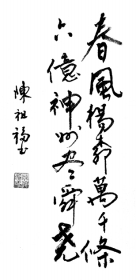 春風楊柳萬千條
六億神州盡舜堯
陳祖福書